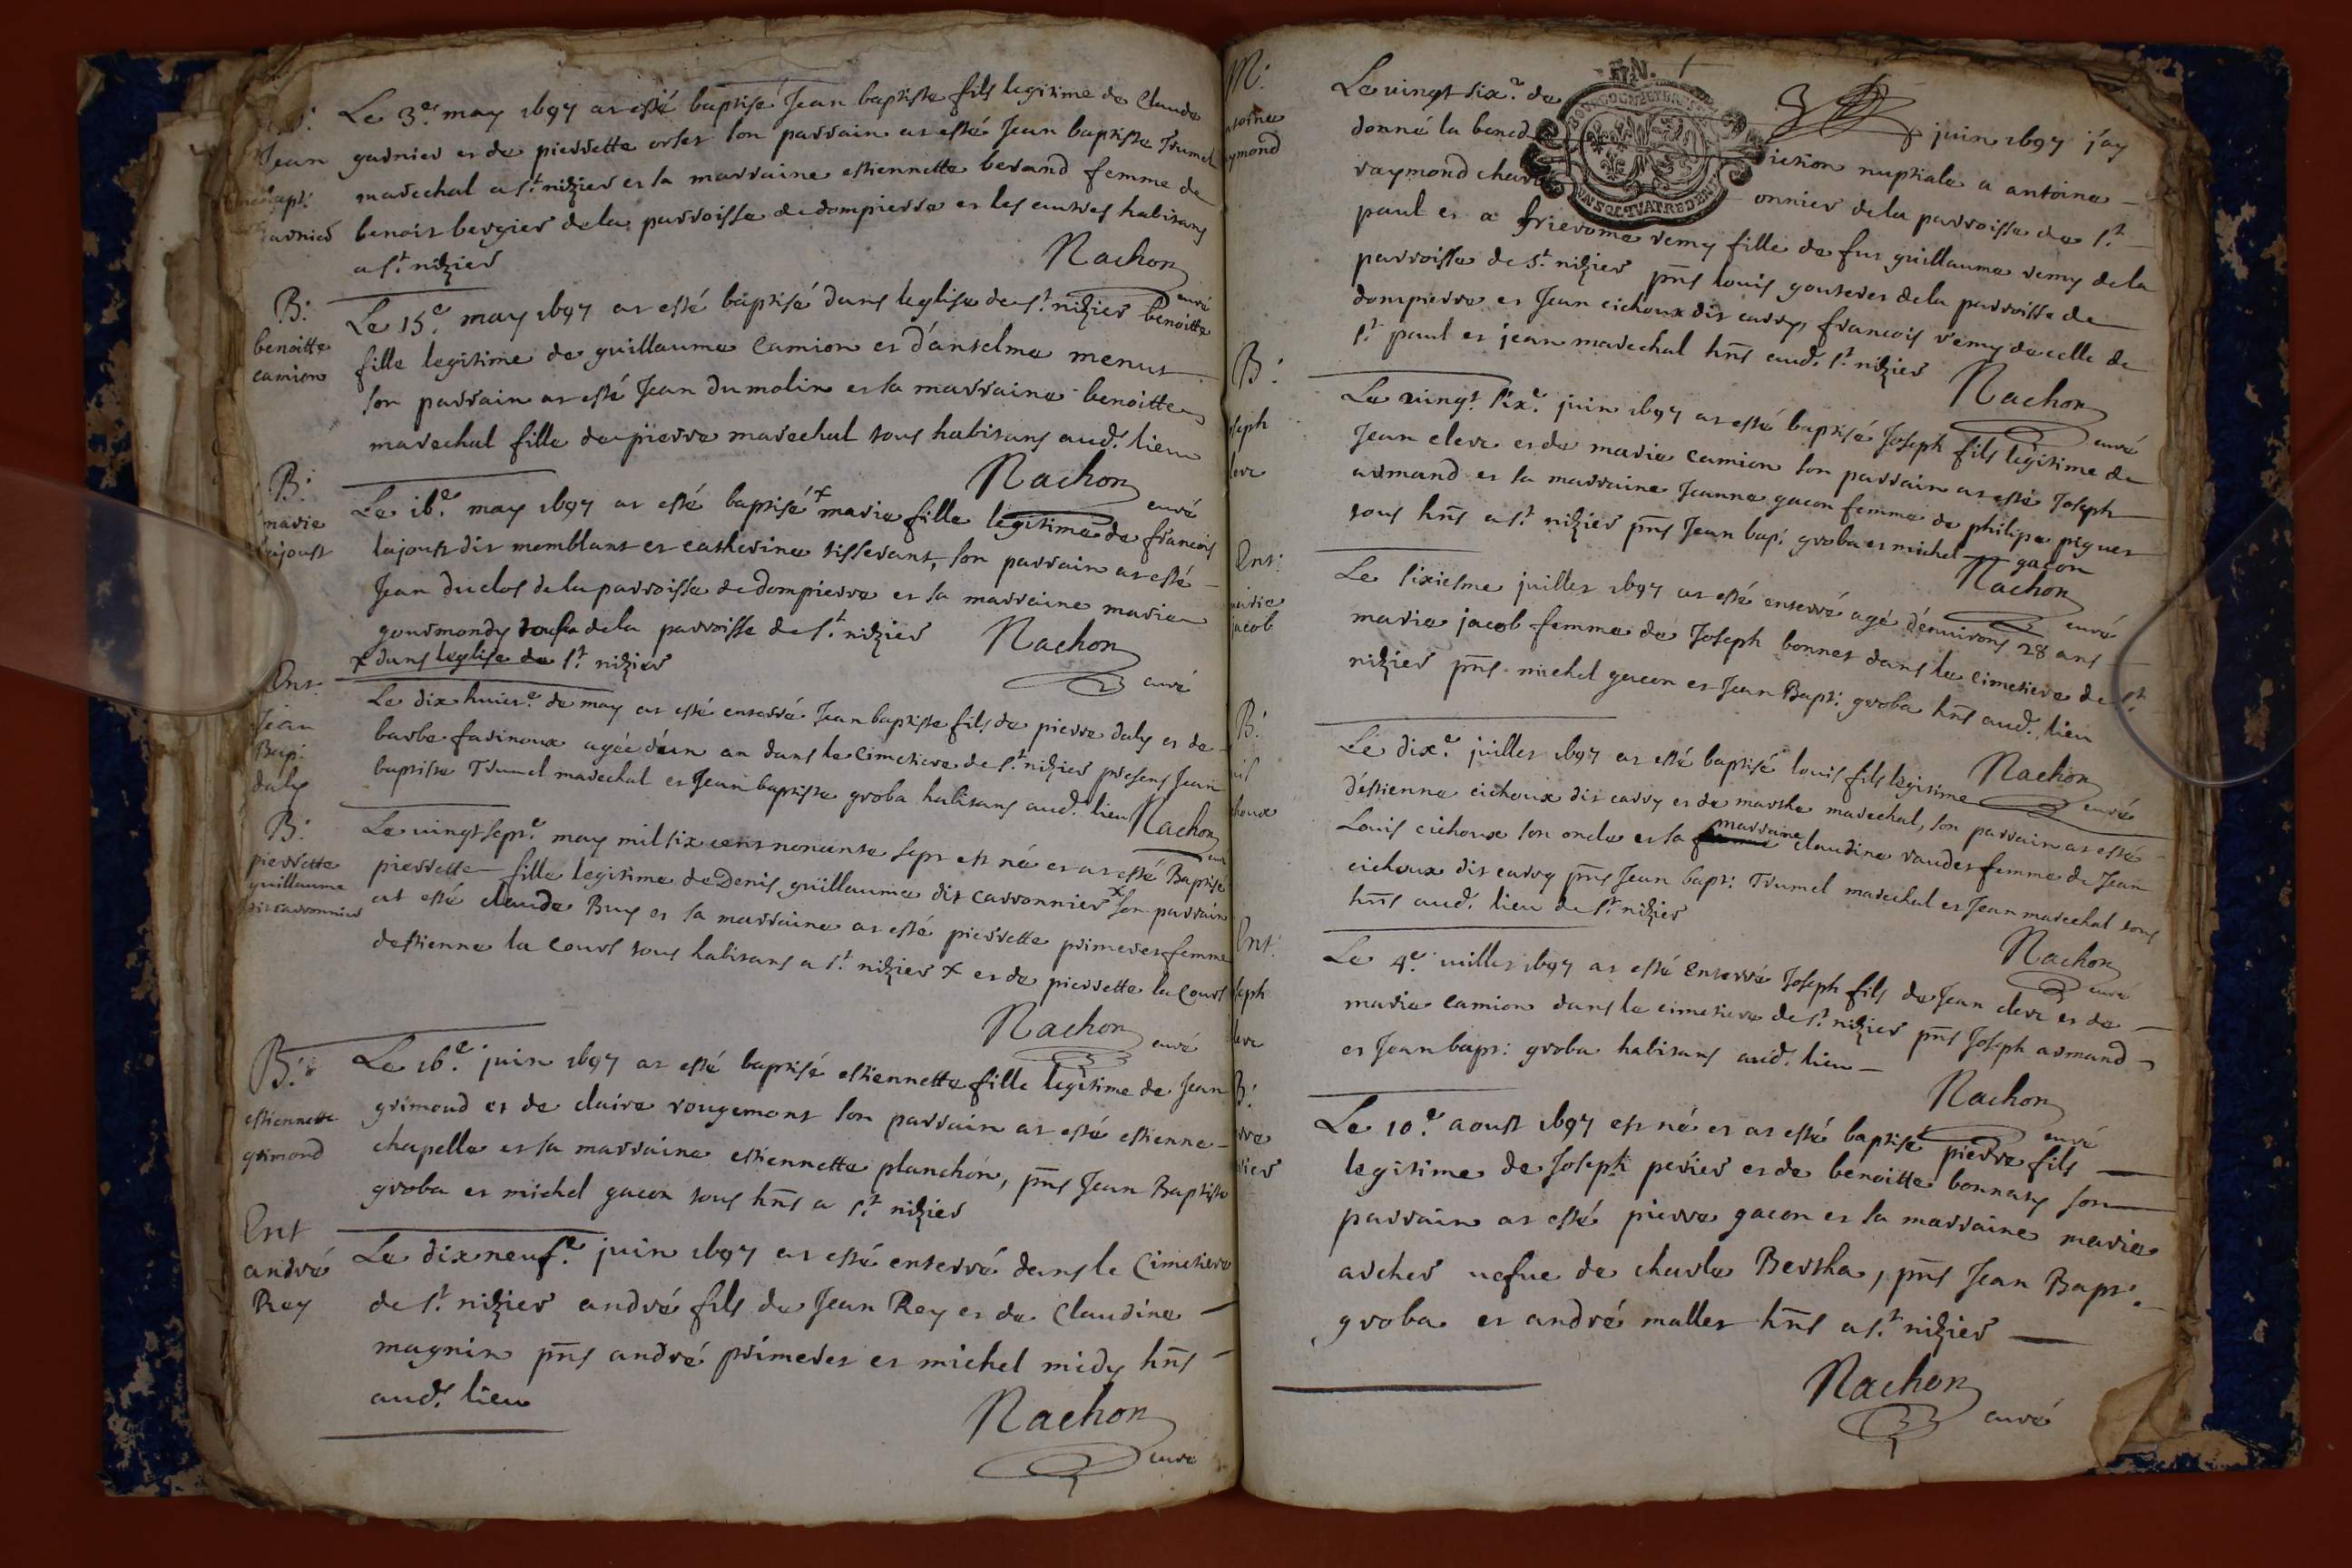 Jean
bapt:
garnier
Le 3e. may 1697 at esté baptisé Jean baptiste fils legitime de Claude
garnier et de pierrette orset son parrain at esté Jean baptiste Trumel
marechal a St. nizier et la marraine estiennette berand femme de
benoit bergier de la parroisse de dompierre et les autres habitans
a St. nizier
Nachon
curé
B:
benoitte
camion
Le 15e. may 1697 at esté baptisé dans leglise de St. nizier benoitte
fille legitime de guillaume Camion et d'anselme menut
son parrain at esté Jean dumolin et la marraine benoitte
marechal fille de pierre marechal tous habitans aud. lieu
Nachon
curé
B:
marie
lajoust
Le 16e. may 1697 at esté baptisé + marie fille legitime de francois
lajoust dit momblant et catherine tisserant, son parrain at esté
Jean duclos de la parroisse de dompierre et la marraine marie
gourmondy de la parroisse de St. nizier
+ dans leglise de St. nizier
Nachon
curé
Ent.
Jean
Bap:
daly
Le dix huict.e de may at esté enterré Jean baptiste fils de pierre daly et de
barbe farinoux agée d'un an dans le Cimetiere de St. nizier presens Jean
baptiste Trumel marechal et Jean baptiste groba habitans aud. lieu
Nachon
curé
B:
pierrette
guillaume
dit carronnier
Le vingt sept.e may mil six cent nonante sept est né et at esté Baptisé
pierrette fille legitime de Denis guillaume dit carronnier + son parrain
at esté claude Buy et la marraine at esté pierrette primeret femme
destienne la Court tous habitans a St. nizier + et de pierrette la Court
Nachon
curé
B:
estiennette
grimond
Le 16e. juin 1697 at esté baptisé estiennette fille legitime de Jean
grimond et de claire rougemont son parrain at esté estienne
chapelle et la marraine estiennette planchon, pnts Jean Baptiste
groba et michel gacon tous hnts a St. nizier
Ent
andré
Rey
Le dix neuf.e juin 1697 at esté enterré dans le Cimetiere
de St. nizier andré fils de Jean Rey et de Claudine
magnin pnts andré primeret et michel midy hnts
aud. lieu
Nachon
curé
M:
antoine
raymond
Le vingt six.e de juin 1697 j'ay
donné la benediction nuptiale a antoine
raymond charonnier de la parroisse de St.
paul et a frierome remy fille de fut guillaume remy de la
parroisse de St. nizier pnts louis gouteret de la parroisse de
dompierre et Jean cichoux dit carry, francois remy de celle de
St. paul et jean marechal hnts aud. St. nizier
Nachon
curé
B:
joseph
clerc
Le vingt six.e juin 1697 at esté baptisé Joseph fils legitime de
Jean clerc et de marie camion son parrain at esté Joseph
armand et la marraine Jeanne gacon femme de philipe piguet
tous hnts a St. nizier pnts Jean bap: groba et michel gacon
Nachon
curé
Ent:
marie
jacob
Le sixiesme juillet 1697 at esté enterré agé d'environs 28 ans
marie jacob femme de Joseph bonnet dans le cimetiere de St.
nizier pnts michel gacon et Jean Bapt: groba hnts aud. lieu
Nachon
curé
B:
louis
cichoux
Le dix.e juillet 1697 at esté baptisé louis fils legitime
d'estienne cichoux dit carry et de marthe marechal, son parrain at esté
Louis cichoux son oncle et la marraine claudine vaudet femme de Jean
cichoux dit carry pnts Jean bapt: Trumel marechal et Jean marechal tous
hnts aud. lieu de St. nizier
Nachon
curé
Ent:
Joseph
clerc
Le 4e. juillet 1697 at esté enterré Joseph fils de Jean clerc et de
marie camion dans le cimetiere de St. nizier pnts Joseph armand
et Jean bapt: groba habitans aud. lieu
Nachon
curé
B:
pierre
perier
Le 10e. aoust 1697 est né et at esté baptisé pierre fils
legitime de Joseph perier et de benoitte bonnaty son
parrain at esté pierre gacon et la marraine marie
archer vefue de charle Bertha, pnts Jean Bapt:
groba et andré mallet hnts a St. nizier
Nachon
curé